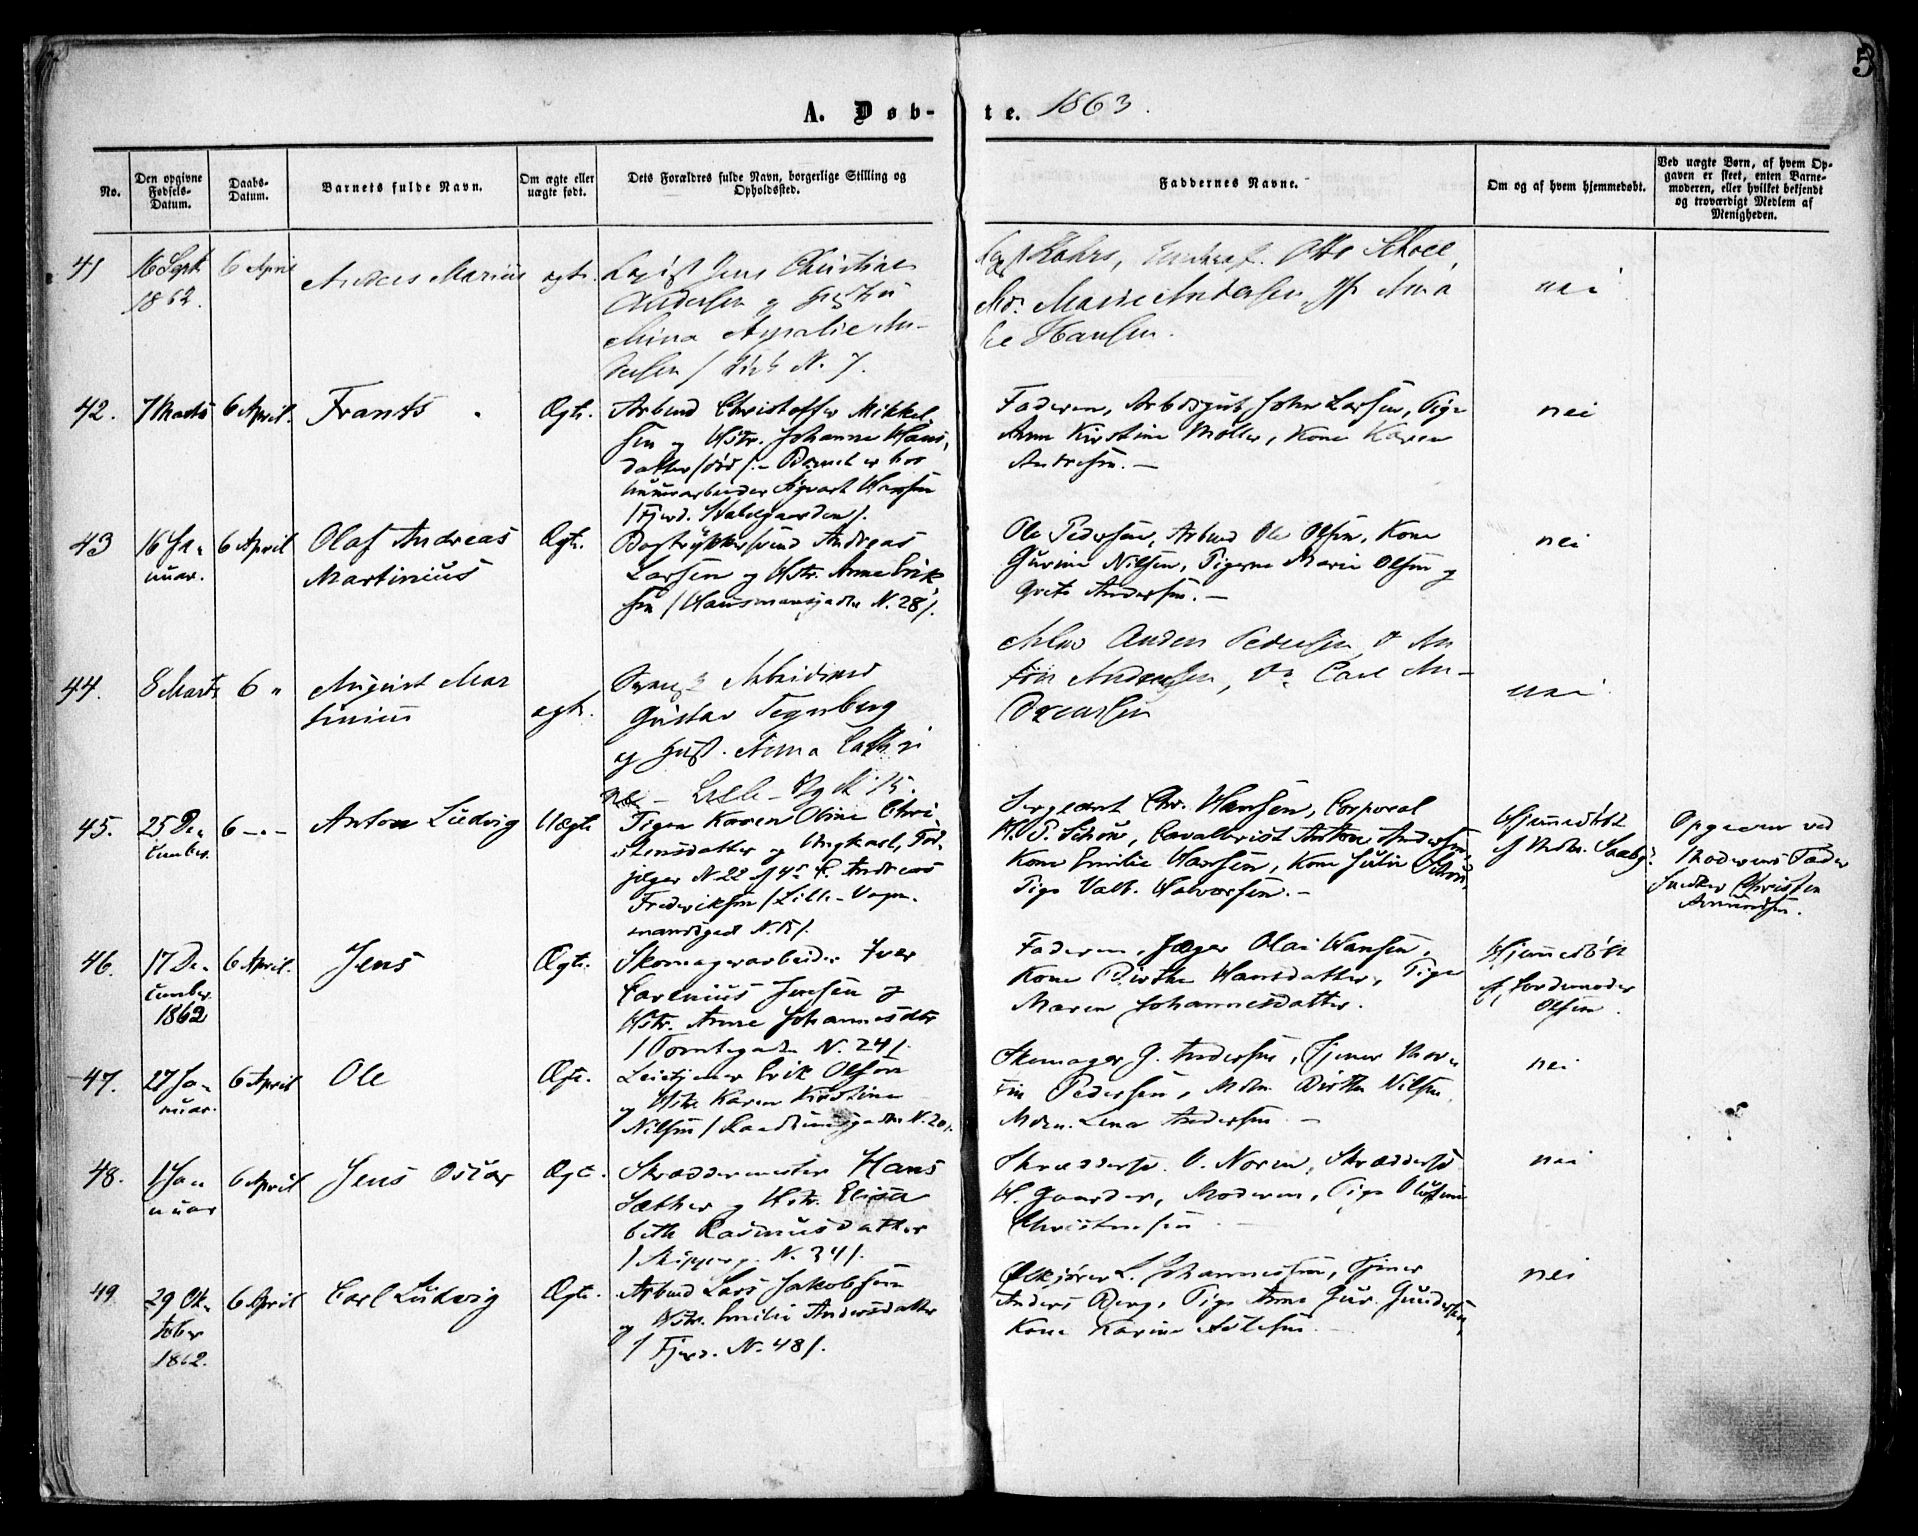 5
A. Døb-te. 1863.
No.
Den opgivne Fødsels-Datum.
Daabs-Datum.
Barnets fulde Navn.
Om ægte eller uægte født.
Dets Forældres fulde Navn, borgerlige Stilling og Opholdssted.
Faddernes Navne.
Om og af hvem hjemmedøbt.
Ved uægte Børn, af hvem Opgaven er skeet, enten Barnemoderen, eller hvilket bekjendt og troværdigt Medlem af Menigheden.
41
16 Sept.
1862.
6 April
Andreas Marius
ægte.
Jens Christian
Andersen og
Mina Amalie An-
dersen
N. 7.
Otto
Marie Andersen
Hansen.
nei
42.
7 Marts
6 April.
Frants
Ægte.
Arbmd Christoffer Mikkel
sen og Hstr. Johanne Hans
datter /død/. - Barnet er hos
Murarbeider Sigvart Hansen
/Fjerd.
Faderen, Arbdsgut John Larsen, Pige
Anne Kirstine Møller, Kone Karen
Andresen. —
nei
43
16 Ja-
nuar.
6 April
Olaf Andreas
Martinius
Ægte.
Bogtrykkersvend Andreas
Larsen og Hstr. Anne Erik
sen /Hausmannsgaden N. 28/.
Ole Pedersen, Arbmd Ole Olsen, Kone
Gurine Nilsen, Pigerne Marie Olsen og
Grete Andersen. —
nei
44.
8 Marts
6 "
August Mar
tinius
ægte.
Arbeidsmd
Gustav Tegnberg
og Hust. Anna Cathri
ne — Lille — N. 15.
Pedersen, An
ton Andersen, Do Carl An-
dreassen
nei
45.
25 De-
cember.
6 —"—
Anton Ludvig
Uægte
Pigen Karen Oline Chri-
stensdatter og Ungkarl,
jæger N 22 Andreas
Frederiksen /Lille- Vogn-
mandsgade N. 15/.
Sergeant Chr. Hansen, Corporal
H. P. Schou, Cavallerist Anton Andersen,
Kone Emilie Hansen, Kone Julie Schou
Pige Valb. Halvorsen. —
Hjemmedøbt
af Mdm. Saabg.
Opgaven ved
Moderens Fader
Snedker Christen
Amundsen.
46.
17 De-
cember.
1862
6 April.
Jens
Ægte.
Skomagerarbeider Iver
Carenius Jensen og
Hstr. Anne Johannesdtr
/Tomtegaden N. 24/.
Faderen, Jæger Olai Hansen,
Kone Birthe Hansdatter, Pige
Maren Johannesdatter.
Hjemmedøbt
af Jordemoder
Olsen.
47.
27 Ja-
nuar.
6 April
Ole
Ægte.
Leietjener Erik Olsen
og Hstr Karen Kirstine
Nilsen / N. 20/.
Skomager G. Andersen, Tjener Mor
tin Pedersen, Mdm. Birthe Nilsen,
Mdm. Lina Andersen —
nei
48.
1 Ja-
nuar
6 April
Jens Oscar
Ægte.
Skræddermester Hans
Sæther og Hstr. Elisa
beth Rasmusdatter
/Skipperg. N. 34/.
Skræddersv. O. Noren, Skræddersv
H. Gaarder, Moderen, Pige Olufine
Christensen —
nei
49
29 Ok-
tober
1862.
6 April
Carl Ludvig
Ægte.
Arbmd Lars Jakobsen
og Hstr. Emilie Andersdatter
/ Fjerd. N. 48/.
Ølkjører L. Johannesen, Tjener
Anders Berg, Pige Anne Gur. Gundersen,
Kone Karine —
nei